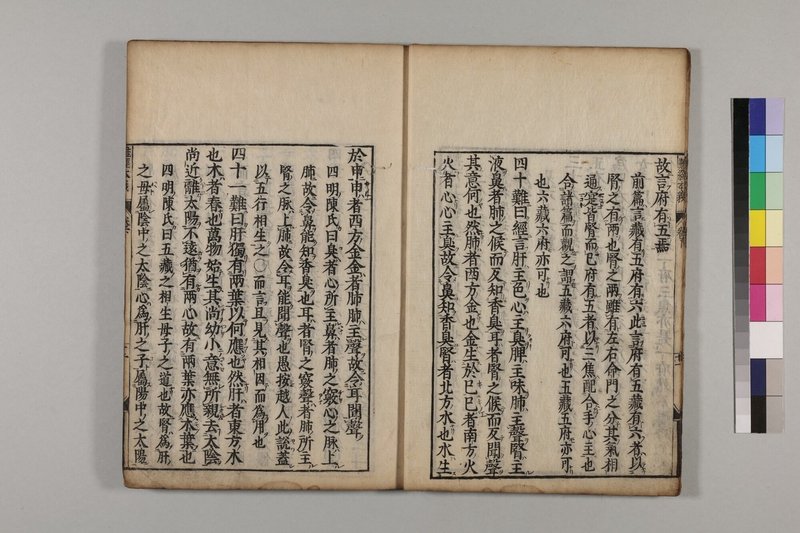 故言府有五焉
前篇言藏有五府有六此言府有五藏有六者以
腎之有兩也腎之兩雖有左右命門之分其氣相
通寔皆腎而已府有五者以三焦配合手心主也
合諸篇而觀之謂五藏六府可也五藏五府亦可
也六藏六府亦可也
四十難曰經言肝主色心主臭脾主味肺主聲腎主
液鼻者肺之候而反知香臭耳者腎之候而反聞聲
其意何也然肺者西方金也金生於巳巳者南方火
火者心心主臭故令鼻知香臭腎者北方水也水生
於申申者西方金金者肺肺主聲故令耳聞聲
四明陳氏曰臭者心所主鼻者肺之竅心之脉上
肺故令鼻能知香臭也耳者腎之竅聲者肺所主
腎之脉上肺故令耳能聞聲也愚按越人此說蓋
以五行相生之○而言且見其相因而為用也
四十一難曰肝獨有兩葉以何應也然肝者東方木
也木者春也萬物始生其尚幼小意無所親去太陰
尚近離太陽不遠猶有兩心故有兩葉亦應木葉也
四明陳氏曰五藏之相生母子之道也故腎為肝
之母屬陰中之太陰心為肝之子屬陽中之太陽